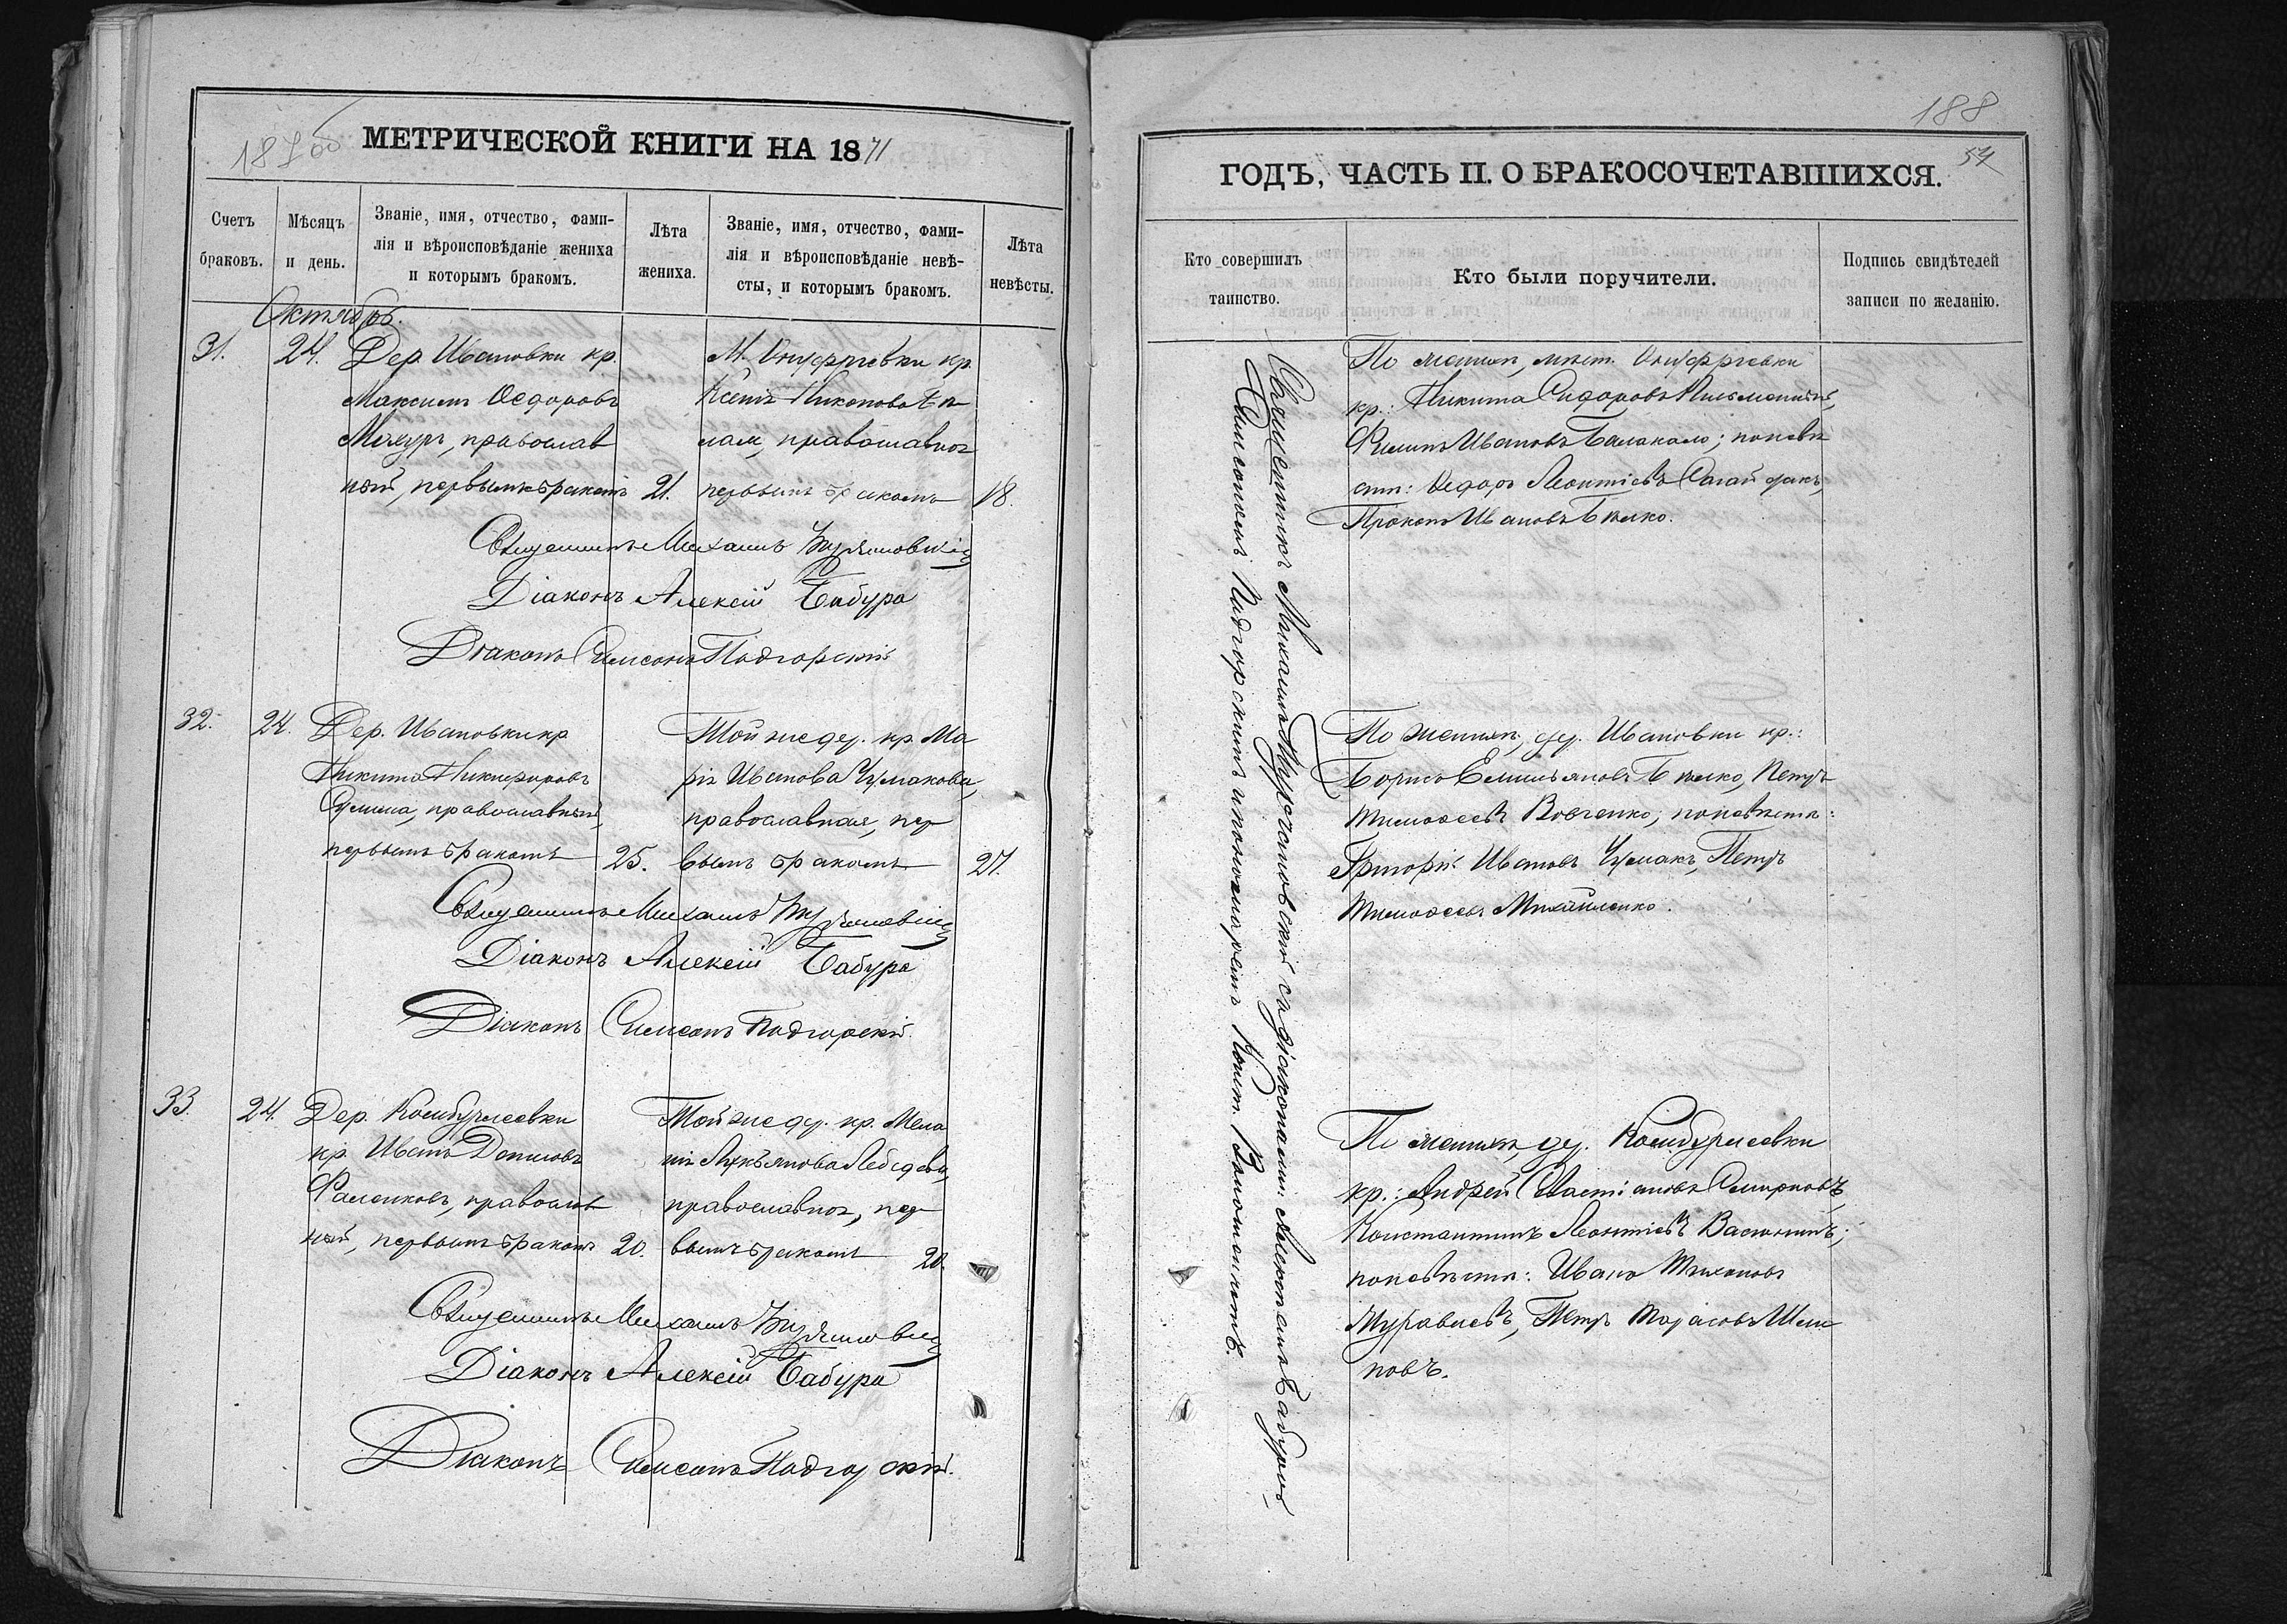 МЕТРИЧЕСКОЙ КНИГИ НА 1871
Счетъ браковъ.
Мѣсяцъ и день.
Званіе, имя, отчество, фами-
лія и вѣроисповѣданіе жениха
и которымъ бракомъ.
Лѣта жениха.
Званіе, имя, отчество, фами-
лія и вѣроисповѣданіе невѣ-
сты, и которымъ бракомъ.
Лѣта невѣсты.
Октябрь.
31.
24.
Дер. Ивановки кр.
Максимъ Ѳедоровъ
православ
ный, первымъ бракомъ
21.
М. Онуфріевки кр.
Ксенія
православная
первымъ бракомъ
18.
Священникъ Михаилъ
Діаконъ Алексій Бабура
Діаконъ Самсонъ Подгорскій
32.
24.
Дер. Ивановки кр
Никита Никифоровъ
православный,
первымъ бракомъ
25.
Той же дер. кр. Ма
рія Иванова Чумакова,
православная, пер
вымъ бракомъ
21.
Священникъ Михаилъ
Діаконъ Алексій Бабура
Діаконъ Самсонъ Подгорскій.
33.
24.
Дер.
кр. Иванъ Даниловъ
православ
ный, первымъ бракомъ
20.
Той же дер. кр. Мела
нія Лукьянова Лебедева,
православная, пер
вымъ бракомъ
20.
Священникъ Михаилъ
Діаконъ Алексій Бабура
Діаконъ Самсонъ Подгорскій.
188
54
ГОДЪ, ЧАСТЬ II. О БРАКОСОЧЕТАВШИХСЯ.
Кто совершилъ
таинство.
Кто были поручители.
Подпись свидѣтелей
записи по желанію.
Священникъ Михаилъ съ діаконами: Бабурою,
Самсономъ Подгорскимъ и пономаремъ
По женихѣ, мѣст. Онуфріевки
кр.: Никита Сидоровъ
Филипъ Ивановъ Балакало; по невѣ
стѣ: Ѳедоръ Леонтіевъ Сагайдакъ,
Ивановъ Бѣлко.
По женихѣ, дер. Ивановки кр.:
Борисъ Емильяновъ Бѣлко, Петръ
Тимоѳеевъ Вовченко; по невѣстѣ:
Григорій Ивановъ Чумакъ, Петръ
Тимоѳеевъ Михайленко.
По женихѣ, дер.
кр.: Андрей Смирновъ,
Константинъ Леонтіевъ Васютинъ;
по невѣстѣ: Иванъ Тихоновъ
Муравьевъ, Петръ Тарасовъ
новъ.